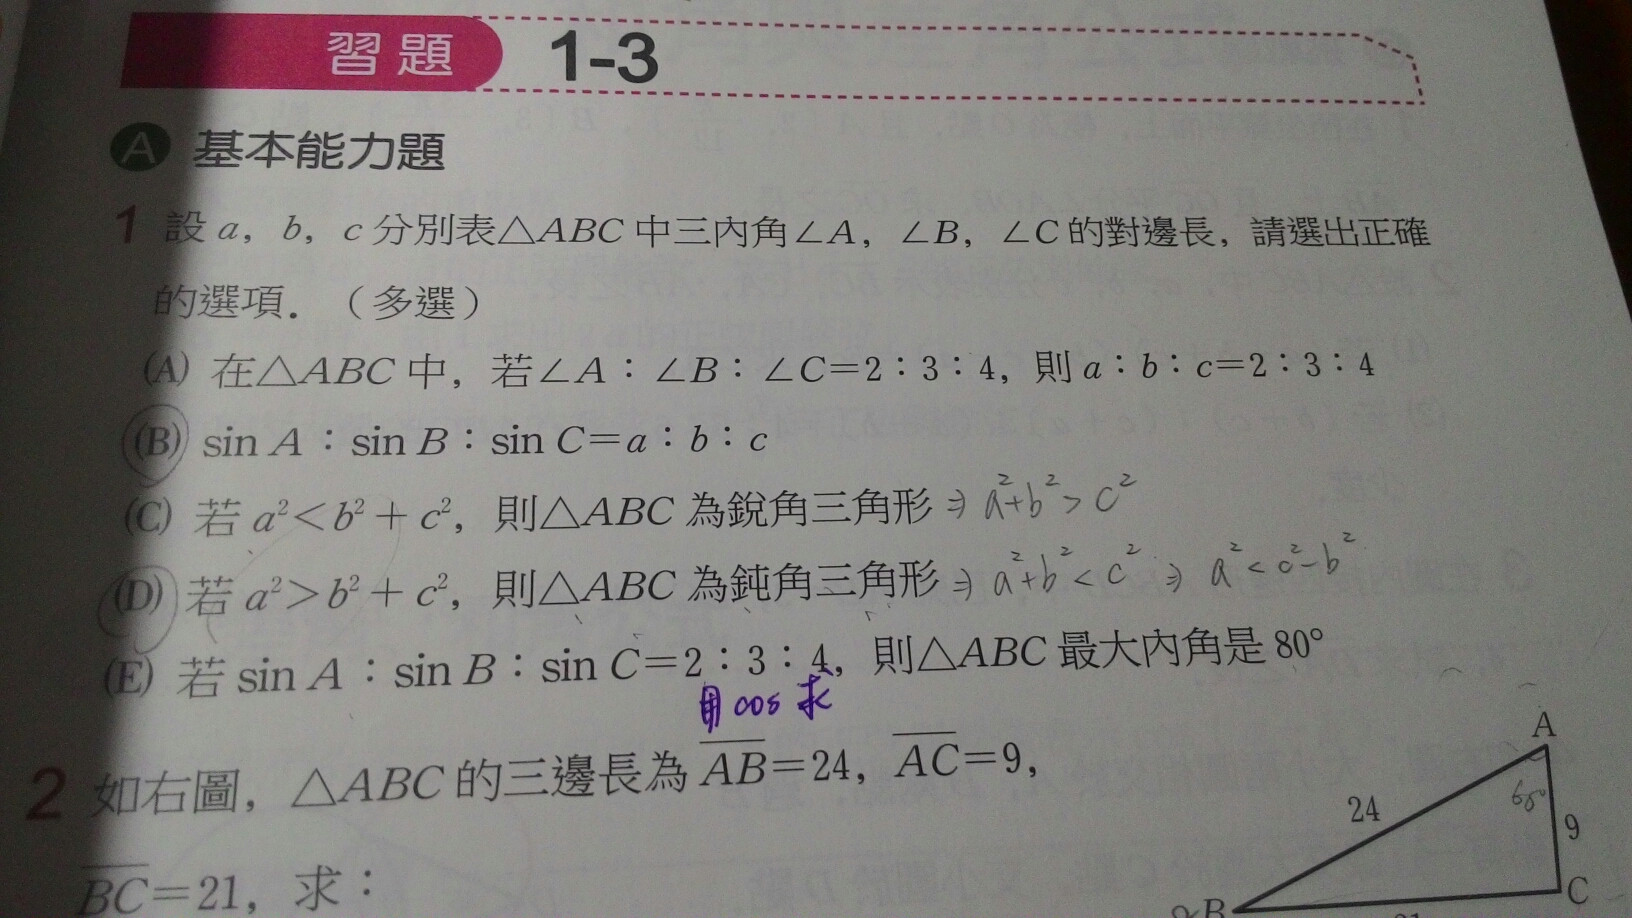 習題 1-3
A 基本能力題
1 設 a，b，c 分別表△ABC 中三內角∠A，∠B，∠C 的對邊長，請選出正確
的選項．（多選）
(A) 在△ABC 中，若∠A：∠B：∠C=2：3：4，則 a：b：c=2：3：4
(B) sin A：sin B：sin C=a：b：c
(C) 若 a²<b²+c²，則△ABC 為銳角三角形 ⇒ a²+b²>c²
(D) 若 a²>b²+c²，則△ABC 為鈍角三角形 ⇒ a²+b²<c² ⇒ a²<c²-b²
(E) 若 sin A：sin B：sin C=2：3：4，則△ABC 最大內角是 80°
用 cos 求
2 如右圖，△ABC 的三邊長為 AB=24，AC=9，
BC=21，求：
A
24
9
B
C